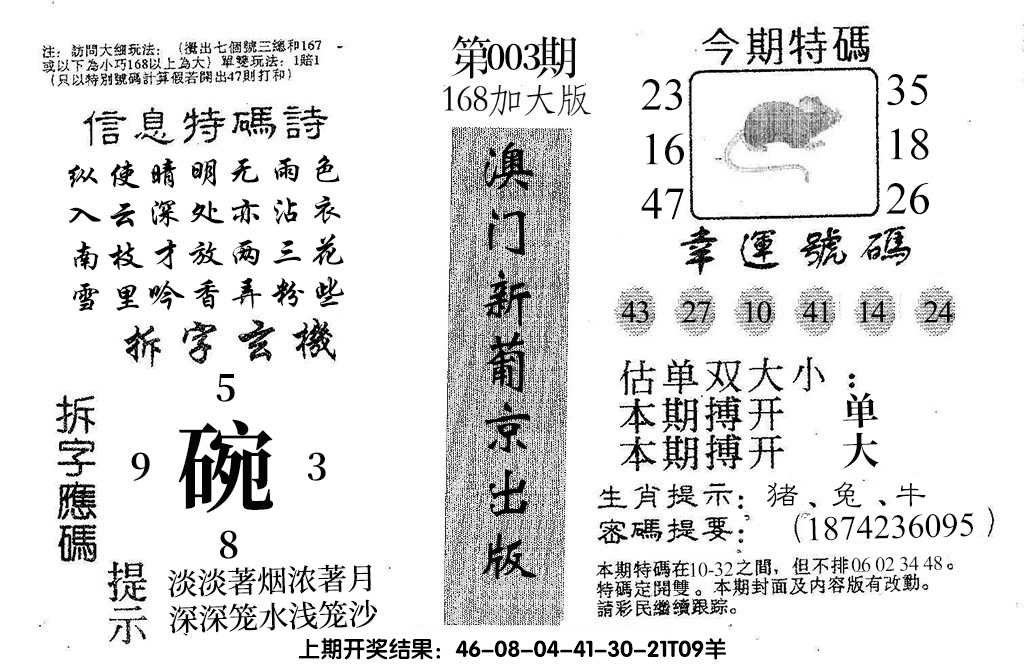 注：訪問大细玩法：(攪出七個號三總和167
或以下為小巧168以上為大）單雙玩法：1賠1
（只以特別號碼計算假若開出47則打和）
信息特碼詩
纵使晴明无雨色
入云深处亦沾衣
南枝才放两三花
雪里吟香弄粉些
拆字玄機
拆字應碼
5
9 碗 3
8
提示
淡淡著烟浓著月
深深笼水浅笼沙
第003期
168加大版
澳门新葡京出版
今期特碼
23 35
16 18
47 26
幸運號碼
43 27 10 41 14 24
估单双大小：
本期搏开 单
本期搏开 大
生肖提示：猪、兔、牛
密碼提要：（1874236095）
本期特碼在10-32之間，但不排06 02 34 48。
特碼定開雙。本期封面及内容版有改動。
請彩民繼續跟踪。
上期开奖结果：46-08-04-41-30-21T09羊